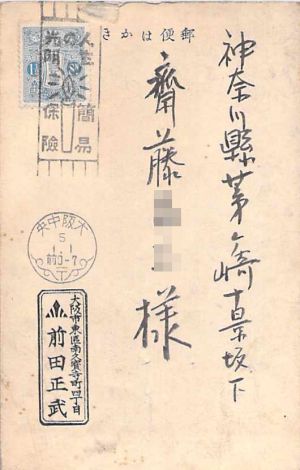 郵便はかき
神奈川縣茅ヶ崎十景坂下
齋藤
様
人生の簡易
光明ニ保険
大阪中央
5
1.1
前0-7
大阪市東區南久寳寺町四丁目
前田正武